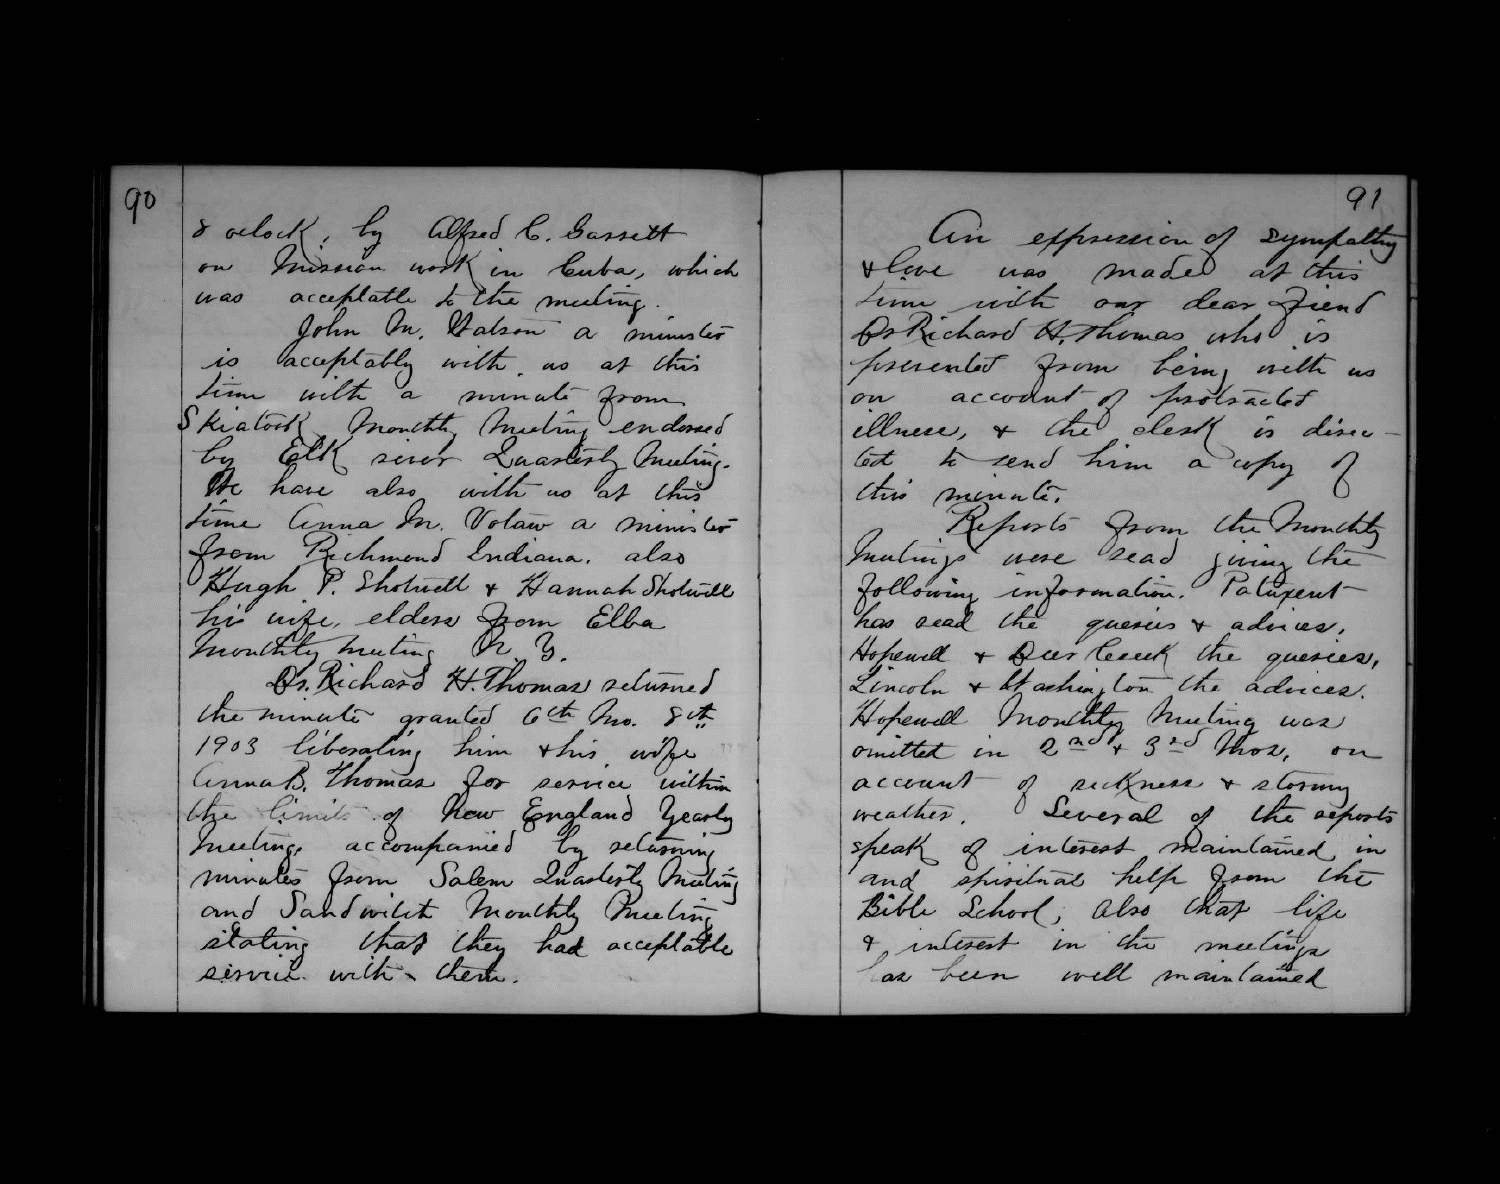 90
8 oclock, by Alfred C. Garrett
on Mission work in Cuba, which
was acceptable to the meeting.
John M. Watson a minister
is acceptably with us at this
time with a minute from
Skiatook Monthly Meeting endorsed
by Elk river Quarterly Meeting.
We have also with us at this
time Anna M. Votaw a minister
from Richmond Indiana. also
Hugh P. Shotwell & Hannah Shotwell
his wife, elders from Elba
Monthly meeting N. Y.
Dr. Richard H. Thomas returned
the minute granted 6th Mo. 8th
1903 liberating him & his wife
Anna B. Thomas for service within
the limits of New England Yearly
Meeting, accompanied by returning
minutes from Salem Quarterly Meeting
and Sandwich Monthly Meeting
stating that they had acceptable
service with them.
91
An expression of sympathy
& love was made at this
time with our dear Friend
Dr Richard H. Thomas who is
prevented from being with us
on account of protracted
illness, & the clerk is direc-
ted to send him a copy of
this minute.
Reports from the Monthly
Meetings were read giving the
following information. Patuxent
has read the queries & advices.
Hopewell & Deer Creek the queries,
Lincoln & Washington the advices.
Hopewell Monthly Meeting was
omitted in 2nd & 3rd Mos, on
account of sickness & stormy
weather. Several of the reports
speak of interest maintained in
and spiritual help from the
Bible School, also that life
& interest in the meetings
has been well maintained